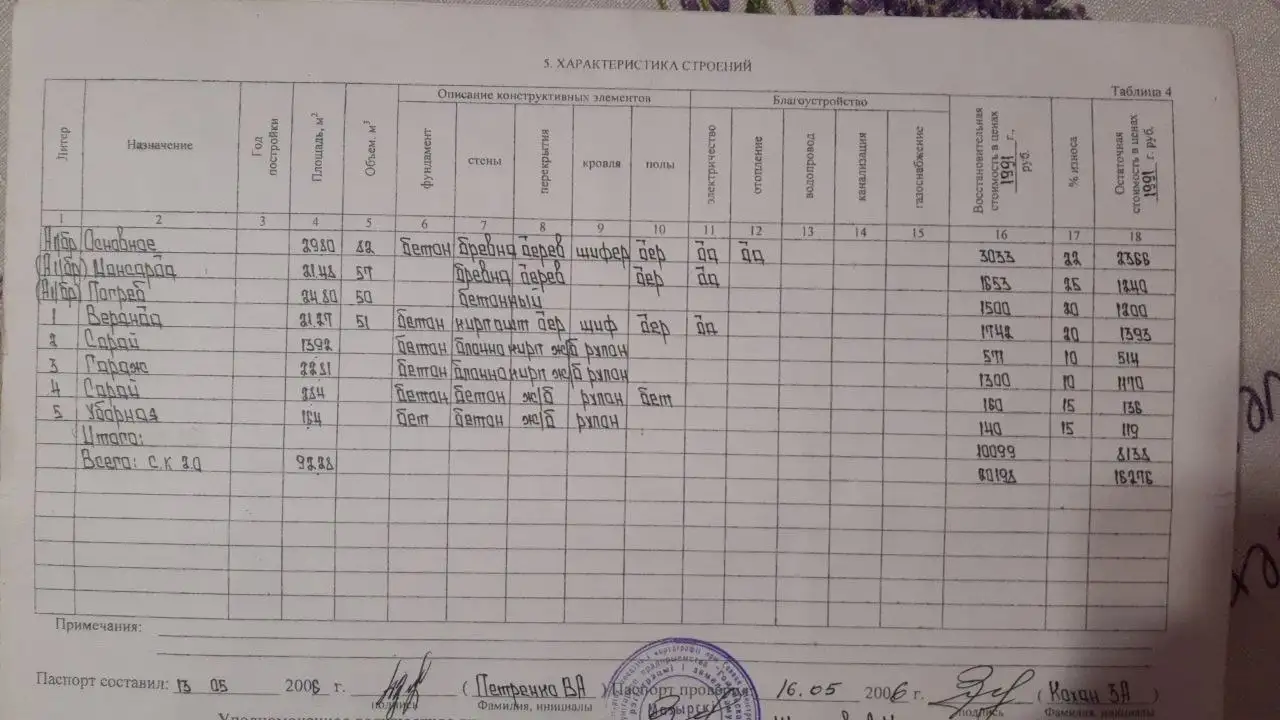 5. ХАРАКТЕРИСТИКА СТРОЕНИЙ
Таблица 4
Литер Назначение Год постройки Площадь, м² Объем, м³ Описание конструктивных элементов Благоустройство Восстановительная стоимость в ценах 1991 г., руб. % износа Остаточная стоимость в ценах 1991 г. руб.
фундамент стены перекрытия кровля полы электричество отопление водопровод канализация газоснабжение
1 2 3 4 5 6 7 8 9 10 11 12 13 14 15 16 17 18
А1/бр Основное 2980 82 бетон бревна дерев шифер дер да да 3033 22 2366
(А1/бр) Мансарда 2148 57 бревна дерев дер да 1653 25 1240
(А1/бр) Погреб 2480 50 бетонный 1500 20 1200
1 Веранда 2127 51 бетон кирпшт дер шиф дер да 1742 20 1393
2 Сарай 1392 бетон блочно кирп ж/б рулон 571 10 514
3 Гараж 2281 бетон блочно кирп ж/б рулон 1300 10 1170
4 Сарай 284 бетон бетон ж/б рулон бет 160 15 136
5 Уборная 164 бет бетон ж/б рулон 140 15 119
Итого: 10099 8138
Всего: с.к 2.0 9228 20198 16276
Примечания:
Паспорт составил: 13 05 2006 г. ( Петренко ВА ) Паспорт проверил 16.05 2006 г. ( Кохан ЗА )
подпись Фамилия, инициалы подпись Фамилия, инициалы